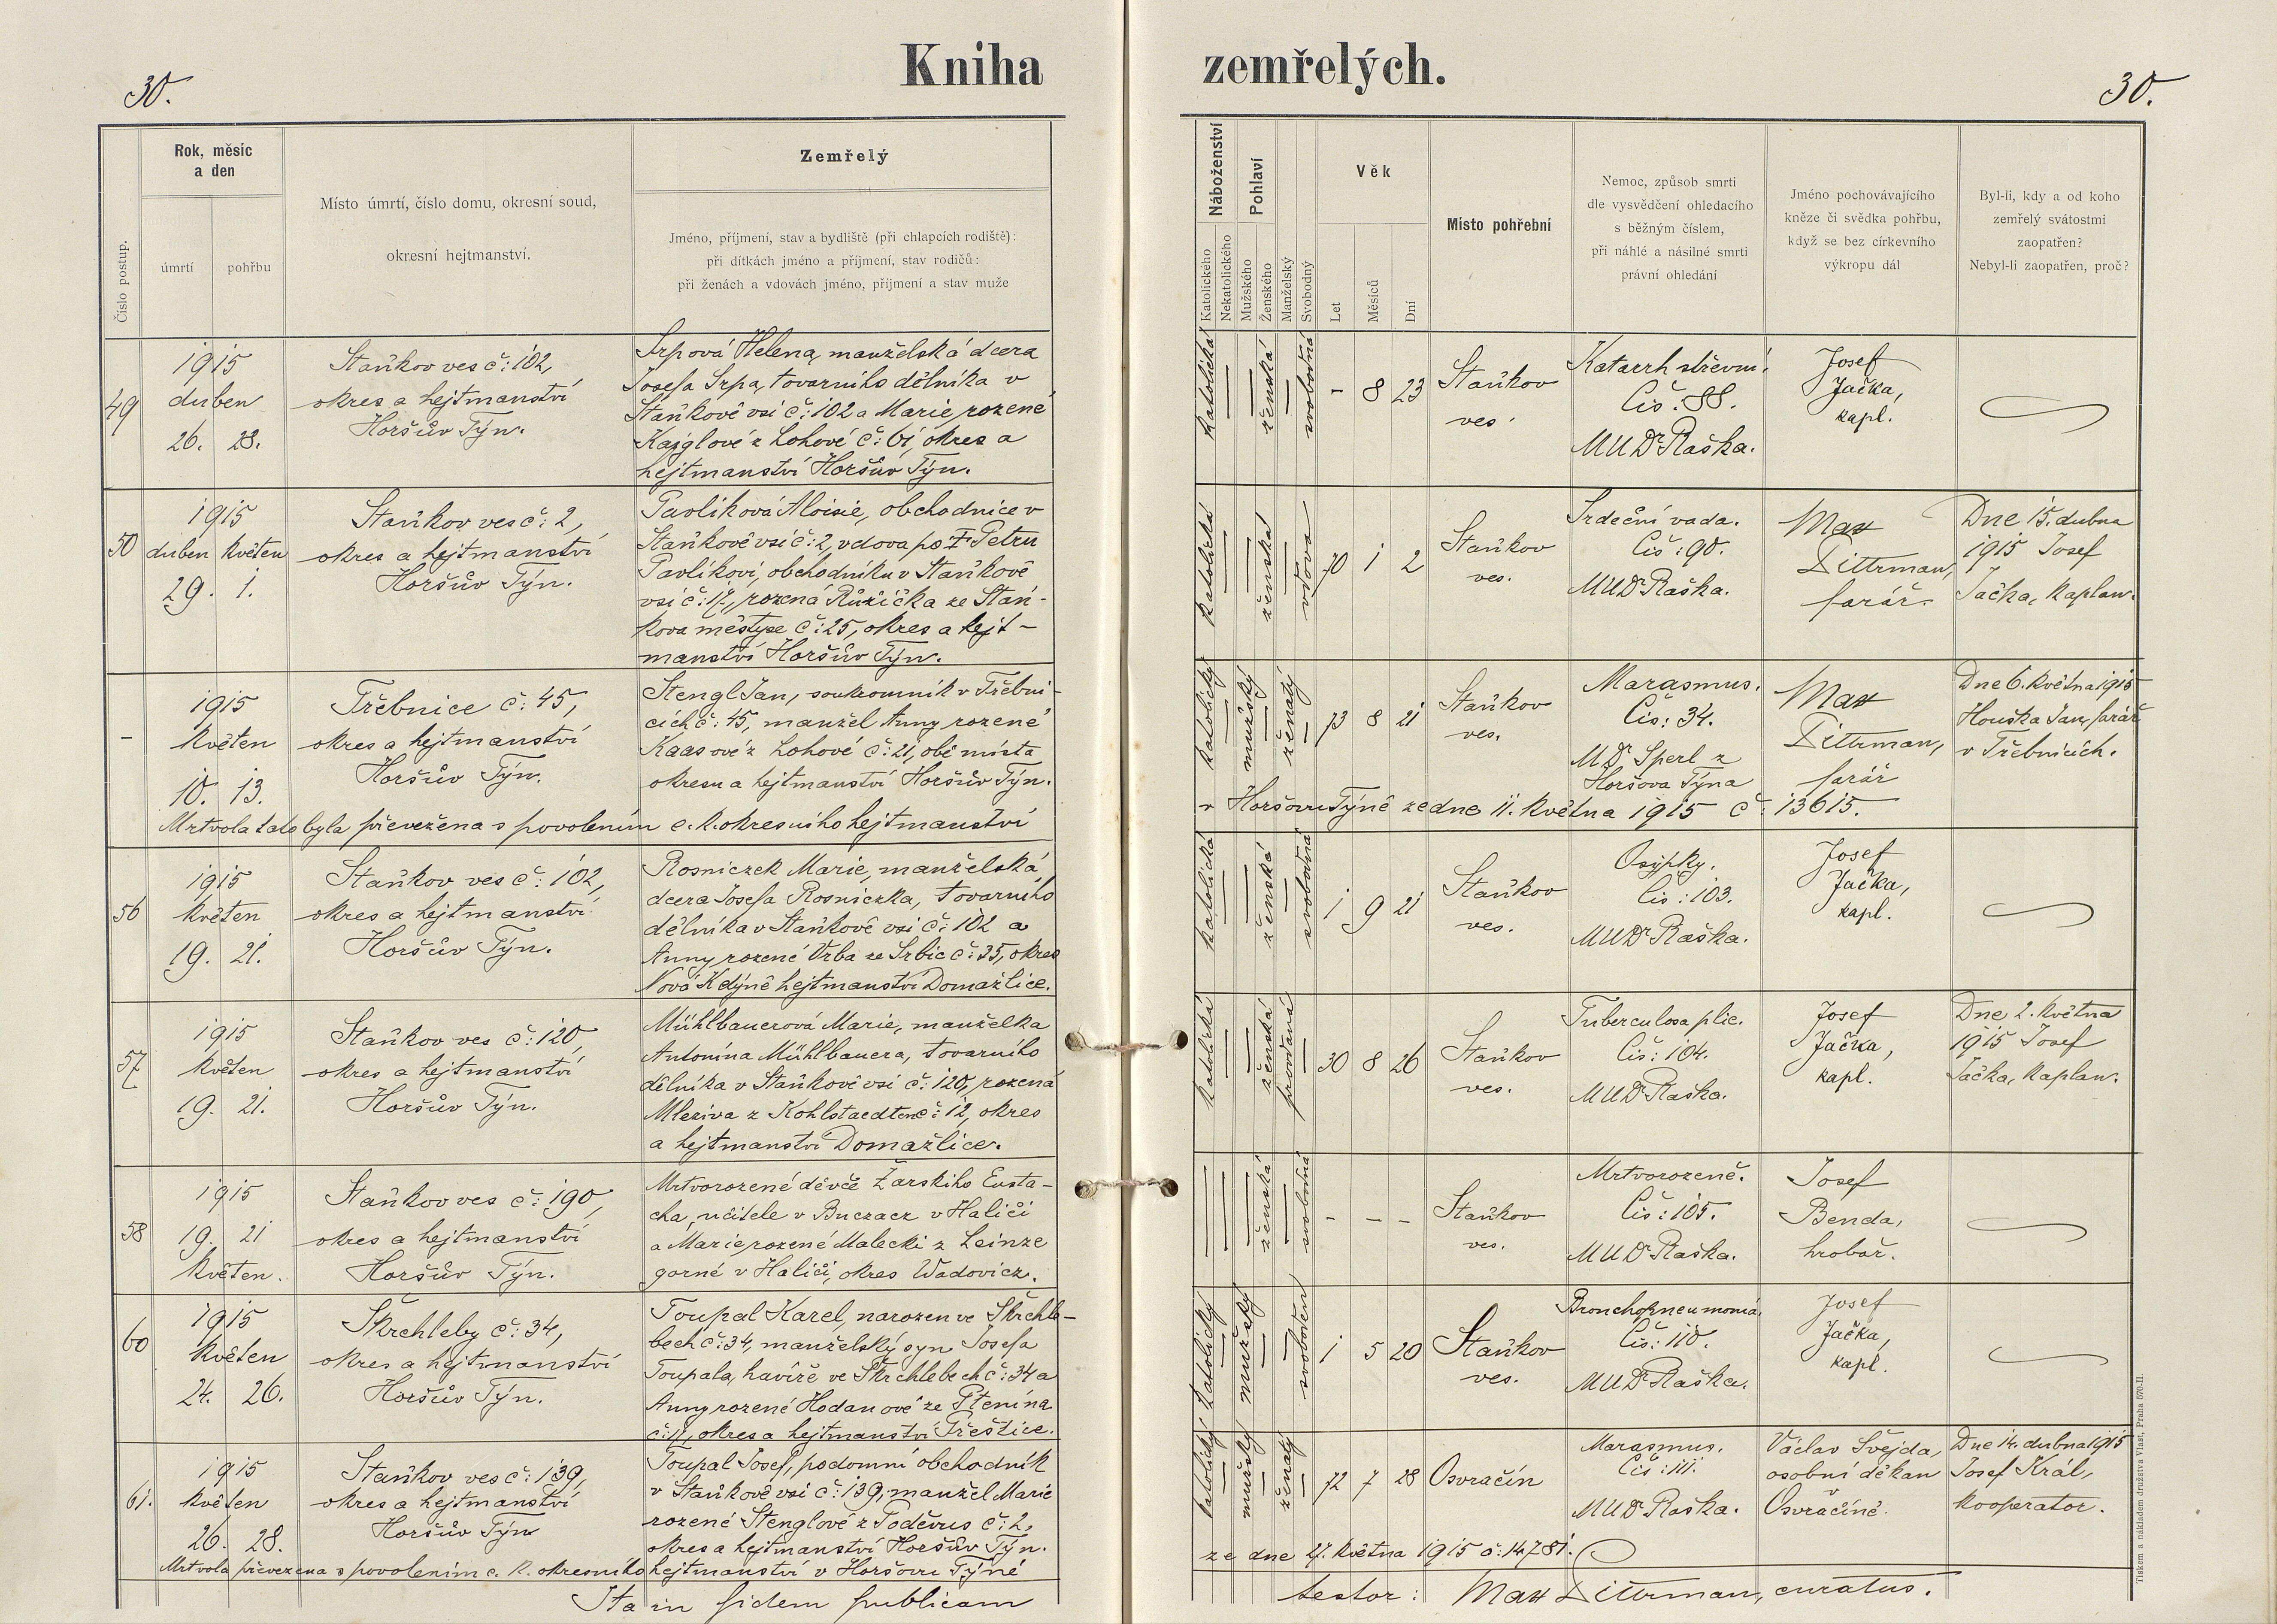 30.
Kniha zemřelých.
30.
Číslo postup.
Rok, měsíc
a den
úmrtí
pohřbu
Místo úmrtí, číslo domu, okresní soud,
okresní hejtmanství.
Zemřelý
Jméno, příjmení, stav a bydliště (při chlapcích rodiště):
při dítkách jméno a příjmení, stav rodičů:
při ženách a vdovách jméno, příjmení a stav muže
Náboženství
Katolického
Nekatolického
Pohlaví
Mužského
Ženského
Manželský
Svobodný
Věk
Let
Měsíců
Dní
Místo pohřební
Nemoc, způsob smrti
dle vysvědčení ohledacího
s běžným číslem,
při náhlé a násilné smrti
právní ohledání
Jméno pochovávajícího
kněze či svědka pohřbu,
když se bez církevního
výkropu dál
Byl-li, kdy a od koho
zemřelý svátostmi
zaopatřen?
Nebyl-li zaopatřen, proč?
49
1915
duben
26. 28.
Staňkov ves č: 102,
okres a hejtmanství
Horšův Týn.
Srpová Helena, manželská dcera
Josefa Srpa, továrního dělníka v
Staňkově vsi č: 102 a Marie rozené
z Lohové č: 61, okres a
hejtmanství Horšův Týn.
katolická
ženská
svobodná
- 8 23
Staňkov
ves.
Katarrh střevní.
Čís: 88.
MUDr Raška.
Josef
Jačka,
kapl.
50
1915
duben květen
29. 1.
Staňkov ves č: 2,
okres a hejtmanství
Horšův Týn.
Pavlíková Aloisie, obchodnice v
Staňkově vsi č: 2, vdova po † Petru
Pavlíkovi, obchodníku v Staňkově
vsi č: 17, rozená Růžička ze Staň-
kova městyse č: 25, okres a hejt-
manství Horšův Týn.
katolická
ženská
vdova
70 1 2
Staňkov
ves.
Srdeční vada.
Čís: 90.
MUDr Raška.
Max
Dittrman,
farář.
Dne 15. dubna
1915 Josef
Jačka, kaplan.
-
1915
květen
10. 13.
Třebnice č: 45,
okres a hejtmanství
Horšův Týn.
Stengl Jan, soukromník v Třebni-
cích č: 45, manžel Anny rozené
Kaasové z Lohové č: 21, obě místa
okresu a hejtmanství Horšův Týn.
katolický
mužský
ženatý
73 8 21
Staňkov
ves.
Marasmus.
Čís: 34.
MDr Sperl z
Horšova Týna
Max
Dittrman,
farář
Dne 6. května 1915
Houška Jan, farář
v Třebnicích.
Mrtvola tato byla převežena s povolením c. k. okresního hejtmanství
v Horšovu Týně ze dne 11. května 1915 č: 13615.
56
1915
květen
19. 21.
Staňkov ves č: 102,
okres a hejtmanství
Horšův Týn.
Rosniczek Marie, manželská
dcera Josefa Rosniczka, továrního
dělníka v Staňkově vsi č: 102 a
Anny rozené Vrba ze Srbic č: 35, okres
Nová Kdýně hejtmanství Domažlice.
katolická
ženská
svobodná
1 9 21
Staňkov
ves.
Osýpky.
Čís: 103.
MUDr Raška.
Josef
Jačka,
kapl.
57
1915
květen
19. 21.
Staňkov ves č: 120,
okres a hejtmanství
Horšův Týn.
Mühlbauerová Marie, manželka
Antonína Mühlbauera, továrního
dělníka v Staňkově vsi č: 120, rozená
Mleziva z Kohlstaedten č: 12, okres
a hejtmanství Domažlice.
katolická
ženská
provdaná
30 8 26
Staňkov
ves.
Tuberculosa plic.
Čís: 104.
MUDr Raška.
Josef
Jačka,
kapl.
Dne 2. května
1915 Josef
Jačka, kaplan.
58
1915
19. 21
květen.
Staňkov ves č: 190,
okres a hejtmanství
Horšův Týn.
Mrtvorozené děvče Žarského Eusta-
cha, učitele v Buczacz v Haliči
a Marie rozené Malecki z Leinze
gorné v Haliči, okres Wadovicz.
ženská
svobodná
- - -
Staňkov
ves.
Mrtvorozeně.
Čís: 105.
MUDr Raška.
Josef
Benda,
hrobař.
60
1915
květen
24. 26.
Škrchleby č: 34,
okres a hejtmanství
Horšův Týn.
Toupal Karel, narozen ve Škrchle-
bech č: 34, manželský syn Josefa
Toupala, havíře ve Škrchlebech č: 34 a
Anny rozené Hodanové ze Ptenína
č: 11, okres a hejtmanství Přeštice.
katolický
mužský
svoboden
1 5 20
Staňkov
ves.
Bronchopneumonia.
Čís: 110.
MUDr Raška.
Josef
Jačka,
kapl.
61.
1915
květen
26. 28.
Staňkov ves č: 139,
okres a hejtmanství
Horšův Týn
Toupal Josef, podomní obchodník
v Staňkově vsi č: 139, manžel Marie
rozené Stenglové z Poděvus č: 2,
okres a hejtmanství Horšův Týn.
katolický
mužský
ženatý
72 7 28
Osvračín
Marasmus.
Čís: 111.
MUDr Raška.
Václav Švejda,
osobní děkan
Osvračíně.
Dne 14. dubna 1915
Josef Král,
kooperator.
Mrtvola převezena s povolením c. k. okresního hejtmanství v Horšovu Týně
ze dne 27. května 1915 č: 14781.
Ita in fidem publicam
testor: Max Dittrman, curatus.
Tiskem a nákladem družstva Vlast, Praha 570-II.